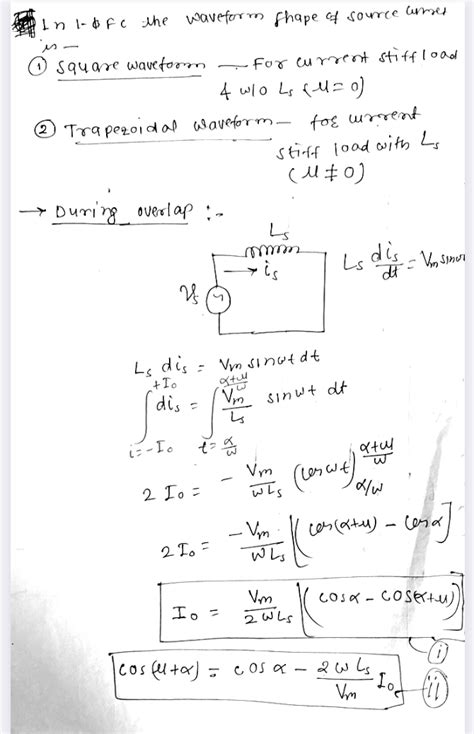 In 1-ϕ F C the waveform shape of source current
is —
① square waveform — For current stiff load
& w/o Ls (μ = 0)
② Trapezoidal waveform — for current
stiff load with Ls
(μ ≠ 0)
→ During overlap :-
Ls
is
Vs
Ls dis/dt = Vm sinω
Ls dis = Vm sinωt dt
∫_{i=-Io}^{+Io} dis = ∫_{t=α/ω}^{(α+μ)/ω} Vm/Ls sinωt dt
2 Io = - Vm/ωLs (cosωt)_{α/ω}^{(α+μ)/ω}
2 Io = -Vm/ωLs [(cos(α+μ) - cosα]
Io = Vm/2ωLs [(cosα - cos(α+μ))]
(i)
cos(μ+α) = cosα - 2ωLs/Vm Io (ii)